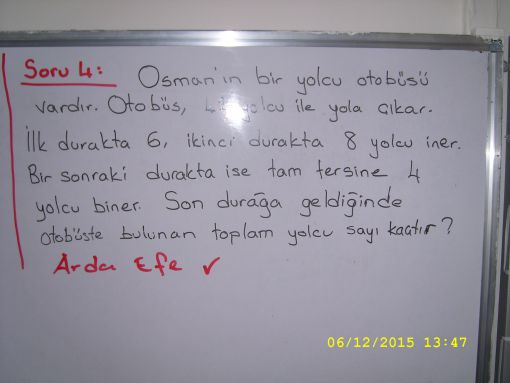 Soru 4: Osman'ın bir yolcu otobüsü
vardır. Otobüs, yolcu ile yola çıkar.
İlk durakta 6, ikinci durakta 8 yolcu iner.
Bir sonraki durakta ise tam tersine 4
yolcu biner. Son durağa geldiğinde
otobüste bulunan toplam yolcu sayı kaçtır?
Arda Efe ✓
06/12/2015 13:47